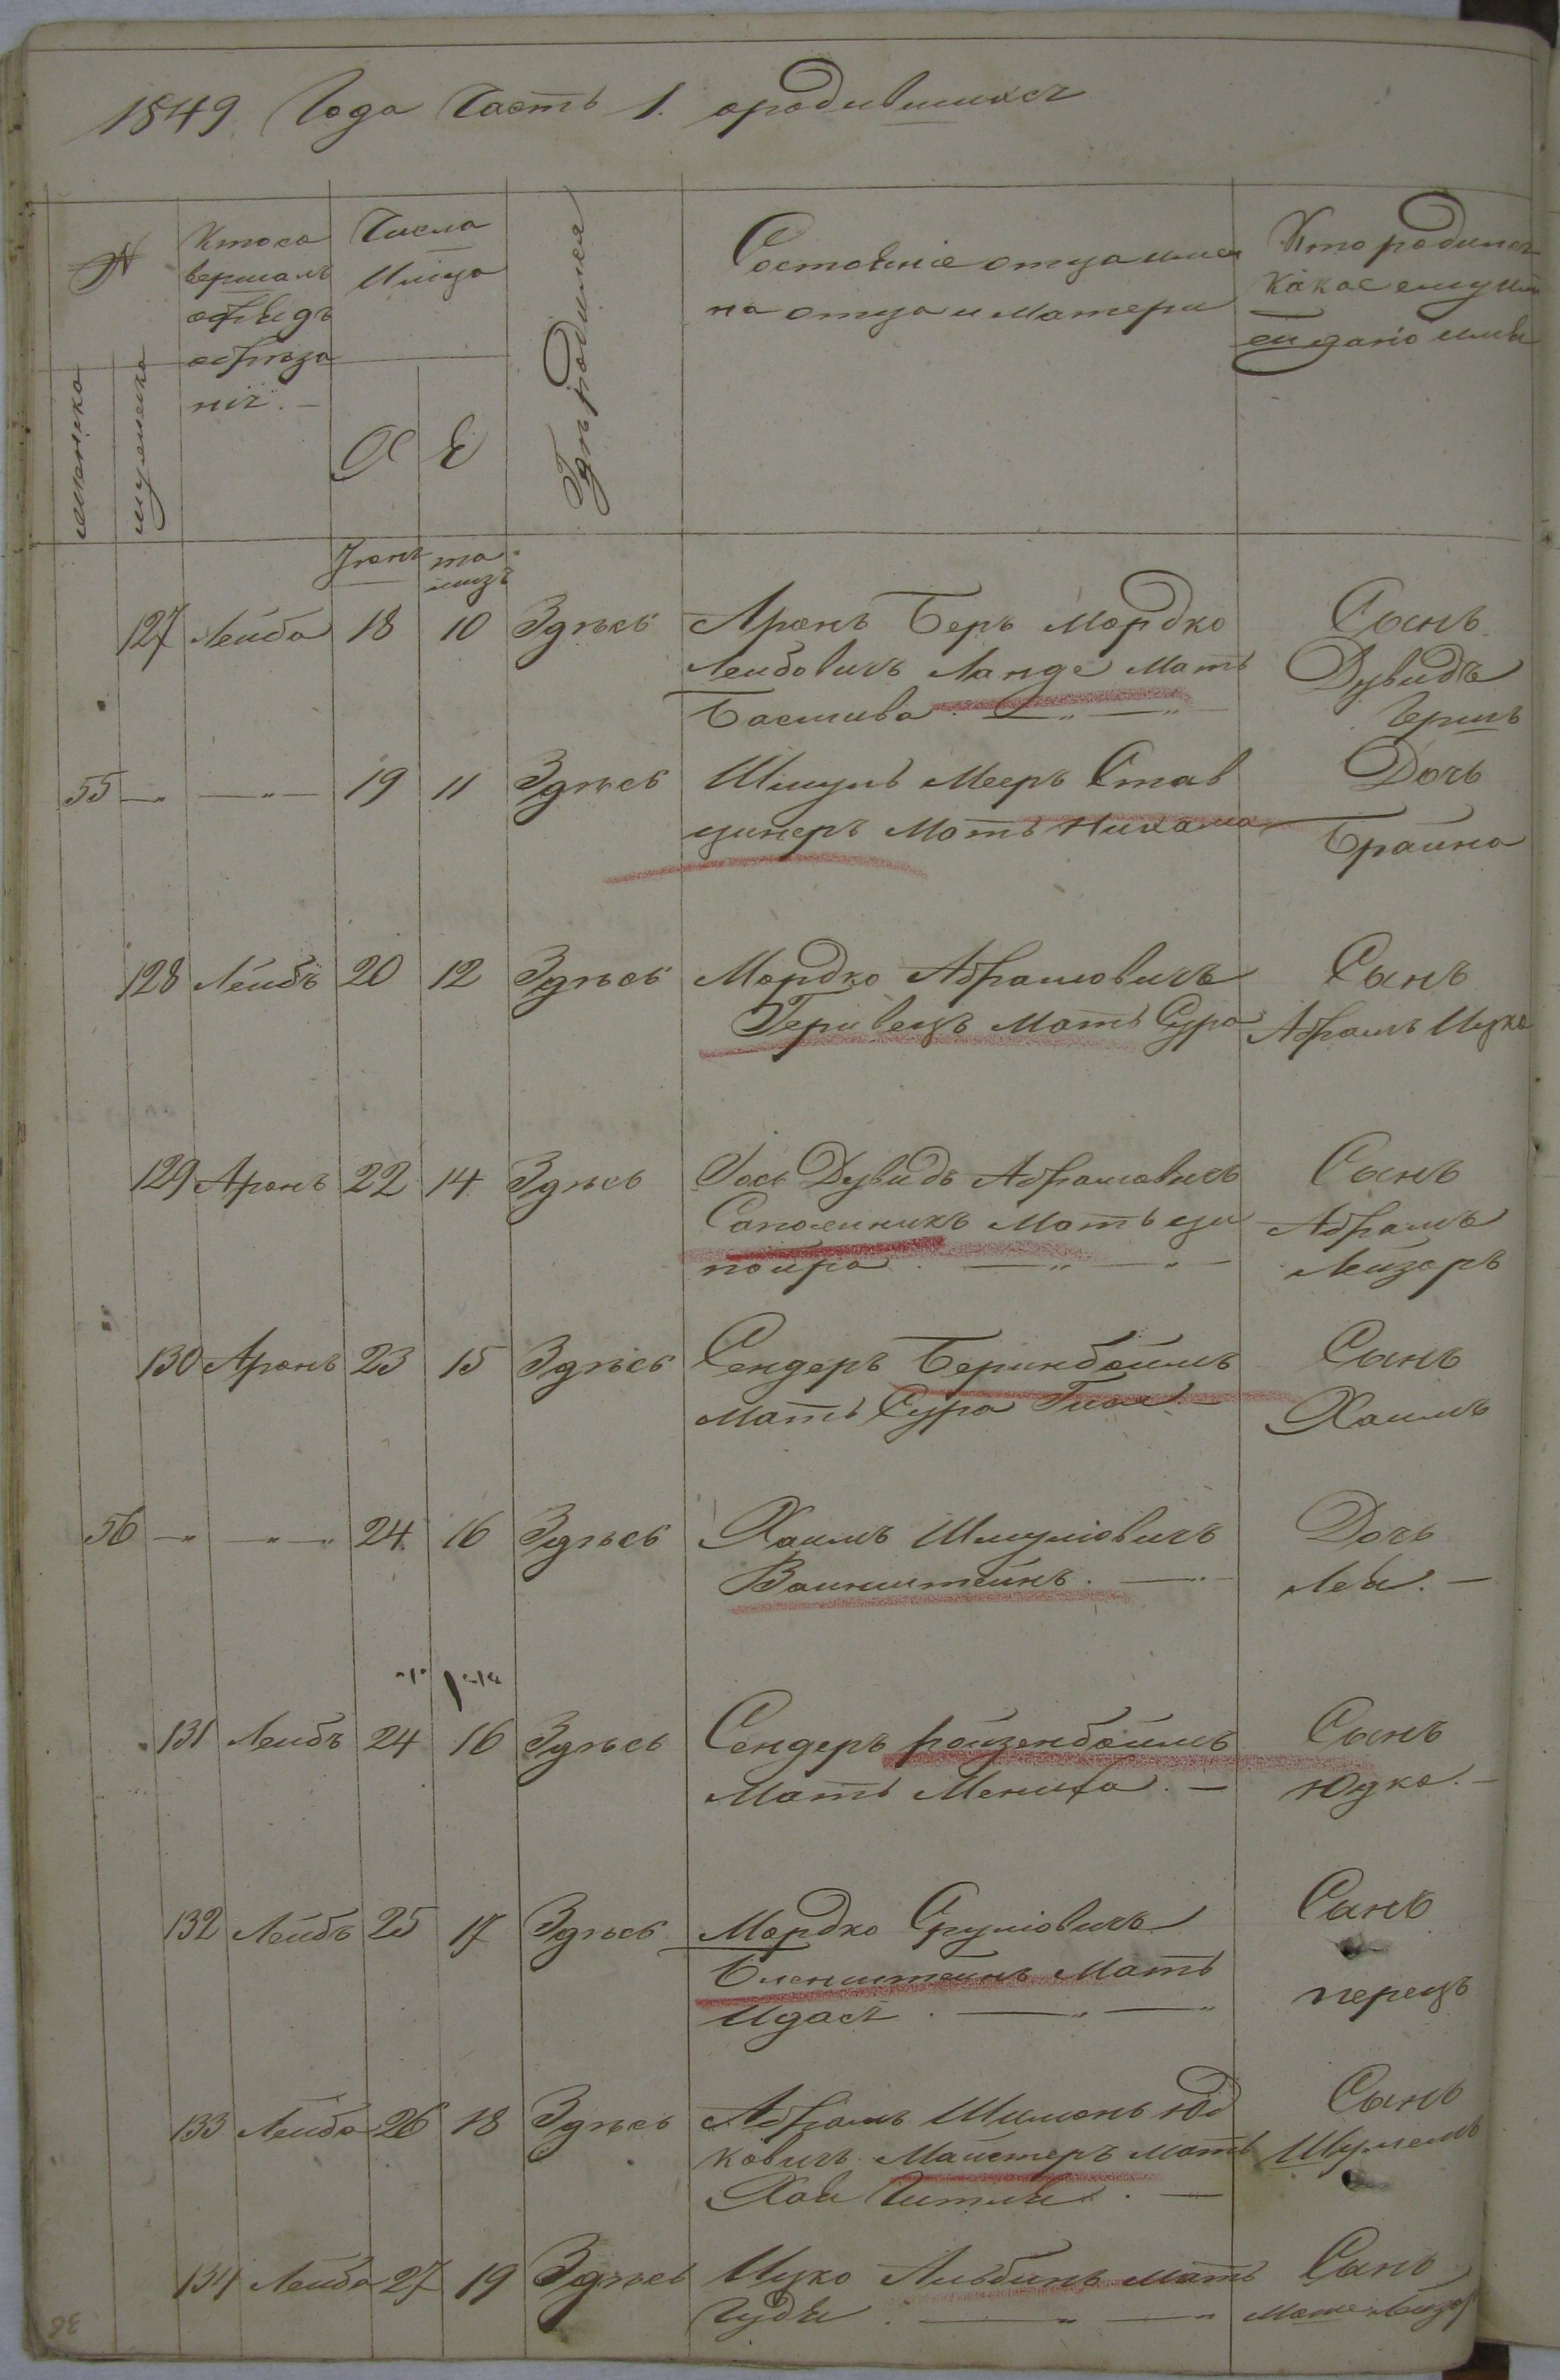 1849 Года Часть 1. ородившихся
№
женска
мужеска
Кто со
вершалъ
обрядъ
обреза
нія. —
Числа
Имца
Х Е
Гдѣ родился
Состояніе отца имя
на отца и матери
Кто родился
какое ему или
ей дано имя
Іюнь та
мизъ
127 Лейба 18 10 Здѣсь Аронъ Беръ Мордко Сынъ
Лейбовичъ Ланде Мать Дувидъ
Басшива Гершъ
55 19 11 Здѣсь Шмуль Мееръ Став Дочь
цинеръ Мать Нихама Брайна
128 Лейбъ 20 12 Здѣсь Мордко Абрамовичъ Сынъ
Гершвецъ Мать Сура Абрамъ Ицко
129 Аронъ 22 14 Здѣсь Іось Дувидъ Абрамовичъ Сынъ
Сапожникъ Мать ци Абрамъ
пойра Лейзоръ
130 Аронъ 23 15 Здѣсь Сендеръ Беринбоймъ Сынъ
Мать Сура Хаимъ
56 24 16 Здѣсь Хаимъ Шмуліовичъ Дочь
Вайнштейнъ. Лея. —
131 Лейбъ 24 16 Здѣсь Сендеръ Ройзенбоймъ Сынъ
Мать Мениха. — Юдко. —
132 Лейбъ 25 17 Здѣсь Мордко Сруліовичъ Сынъ
Бленштейнъ Мать перецъ
Идася
133 Лейба 26 18 Здѣсь Абрамъ Шимонъ Юд Сынъ
ковичъ Майстеръ мать Шулемъ
Хая Гитля. —
134 Лейба 27 19 Здѣсь Ицко Альбинъ мать Сынъ
Гудя Мошелейзоръ